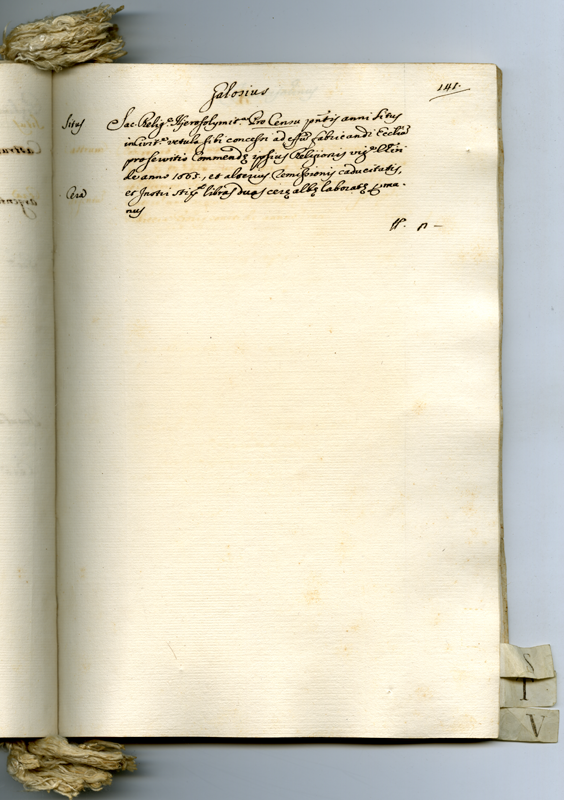 Jalosius
141.
Situs Sac. Relig.e Hyerosolymit.e Pro Censu pn̄tis anni Situs
in civit.e vetula sibi concessi ad effū fabricandi Eccliā
pro servitio Commendę ipsius Religionis vig.e
de anno 1663, et alterius remissionis caducitatis,
Cera et Instri libras duas cerę albę laboratę
nus
V